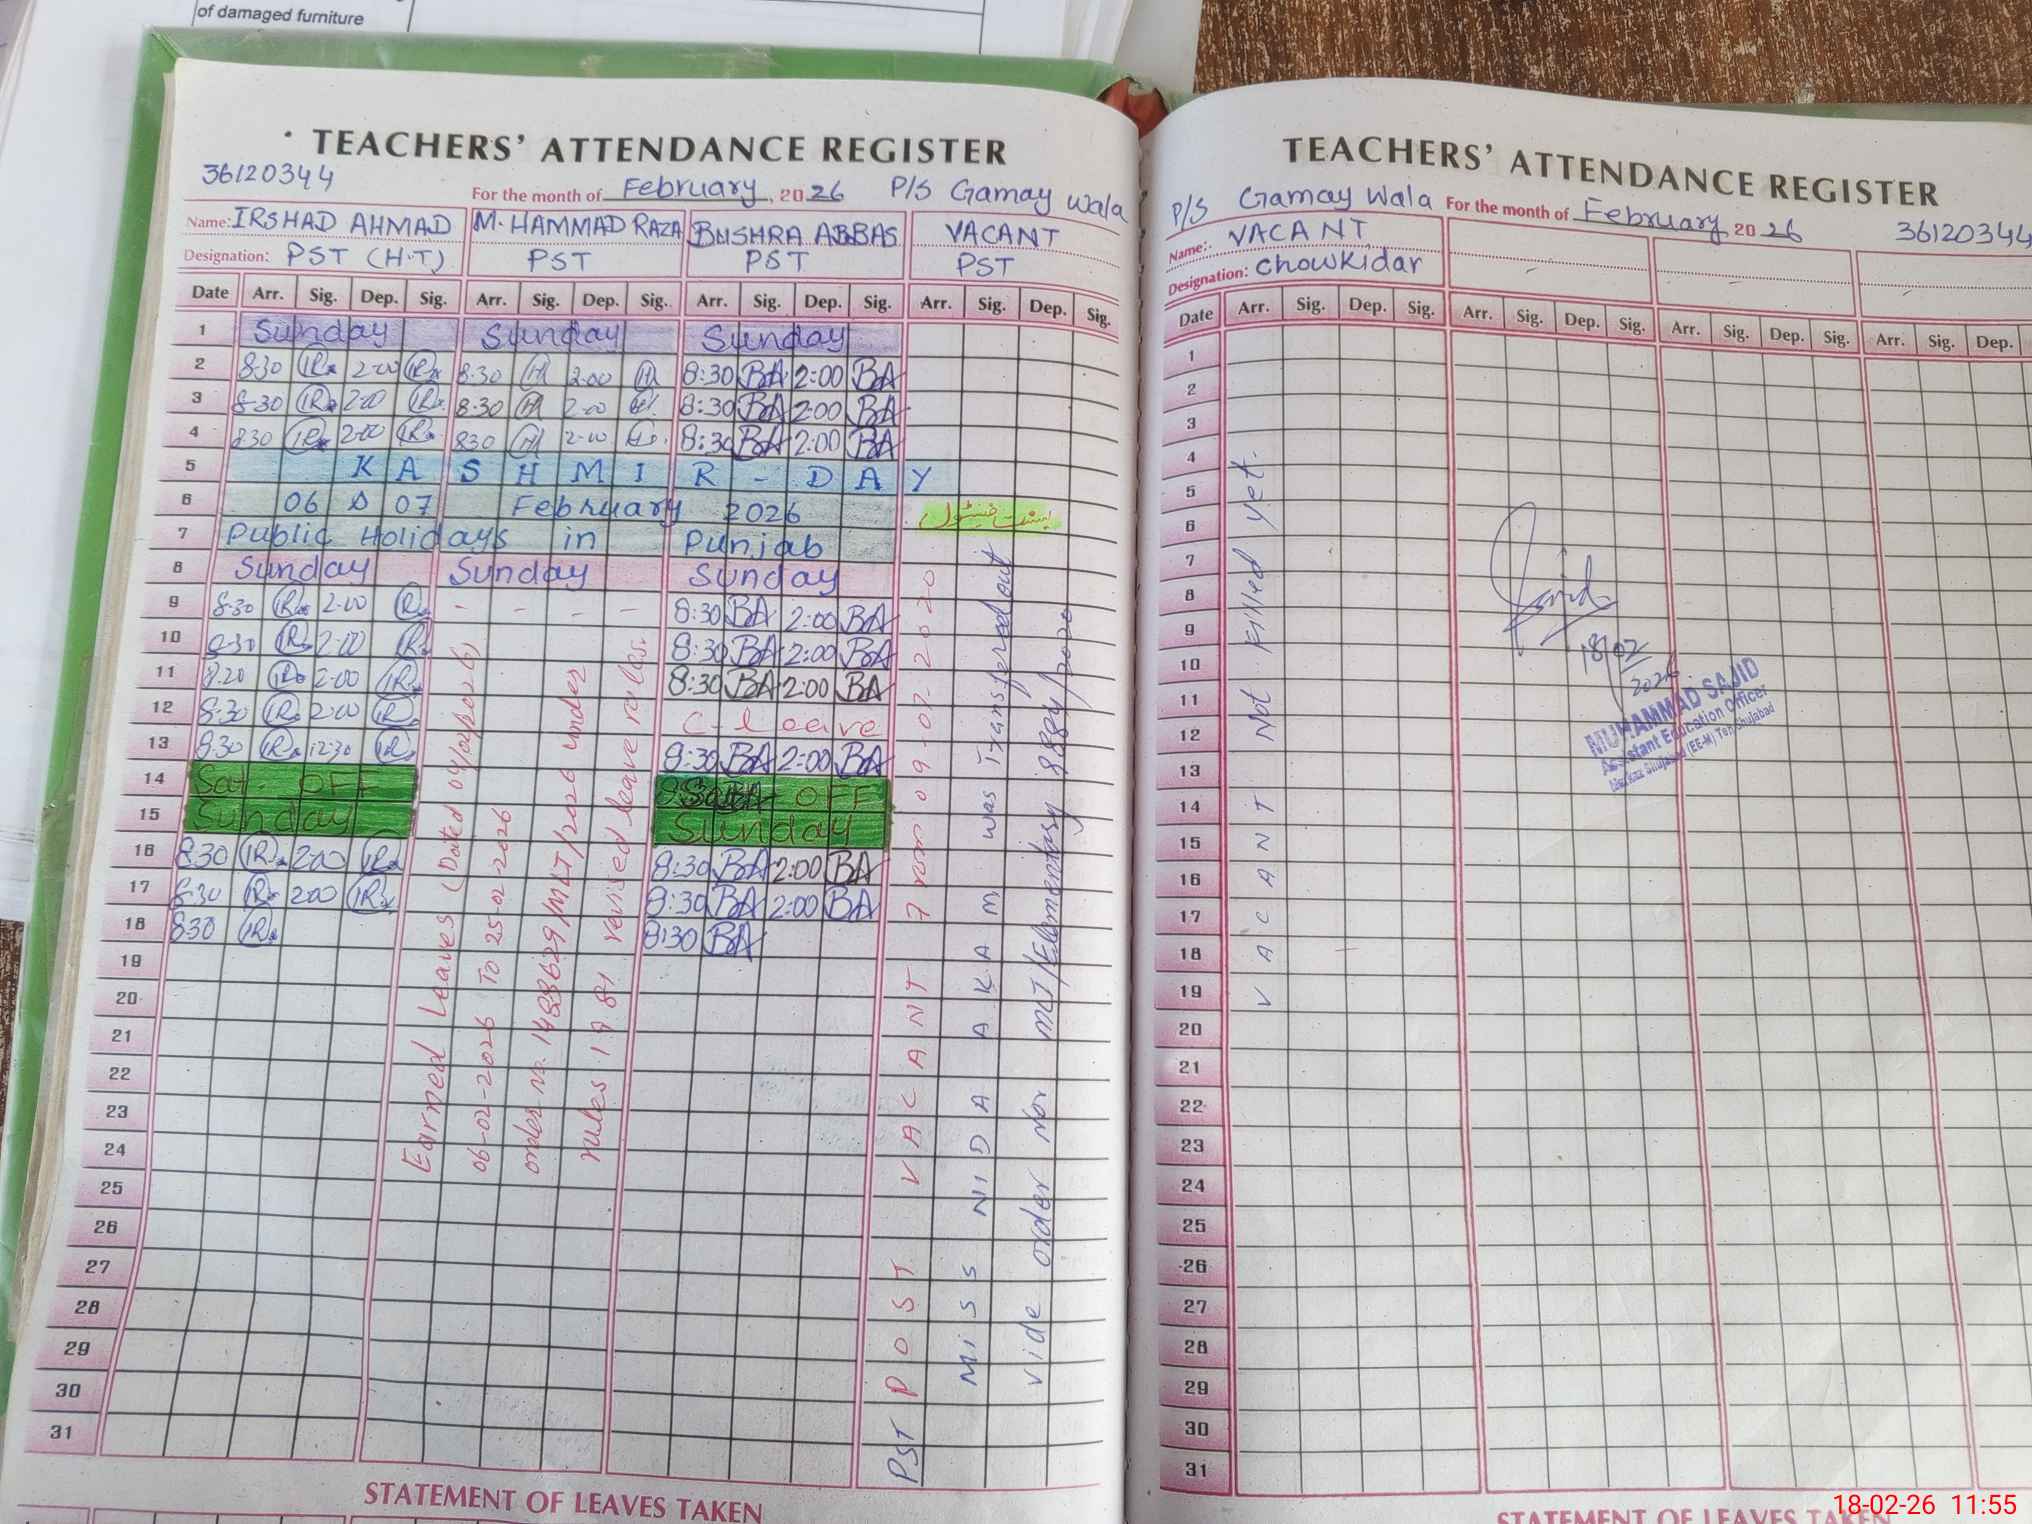 of damaged furniture
TEACHERS' ATTENDANCE REGISTER
36120344
For the month of February, 2026 P/S Gamay Wala
Name: IRSHAD AHMAD M. HAMMAD RAZA BUSHRA ABBAS VACANT
Designation: PST (H.T) PST PST PST
Date Arr. Sig. Dep. Sig. Arr. Sig. Dep. Sig. Arr. Sig. Dep. Sig. Arr. Sig. Dep. Sig.
1 Sunday Sunday Sunday
2 8:30 2:00 8:30 2:00 8:30 BA 2:00 BA
3 8:30 2:00 8:30 2:00 8:30 BA 2:00 BA
4 8:30 2:00 8:30 2:00 8:30 BA 2:00 BA
5 KASHMIR - DAY
6 06 & 07 February 2026
بسنت فیسٹیول
7 Public Holidays in Punjab
8 Sunday Sunday Sunday
9 8:30 2:00 - - - - 8:30 BA 2:00 BA
10 8:30 2:00 8:30 BA 2:00 BA
11 8:20 2:00 8:30 BA 2:00 BA
12 8:30 2:00 C-leave
13 8:30 12:30 8:30 BA 2:00 BA
14 Sat. OFF OFF
15 Sunday Sunday
16 8:30 2:00 8:30 BA 2:00 BA
17 8:30 2:00 8:30 BA 2:00 BA
18 8:30 8:30 BA
19
20
21
22
23
24
25
26
27
28
29
30
31
Earned Leaves (Dated 04/02/2026)
06-02-2026 To 25-02-2026
order no. 1488629/MLT/2026 under
rules 1981 revised leave rules.
PST POST VACANT from 09-07-2020
MISS NIDA AKAM was transfered out
vide order no MLT/Elementary 8884/2020
STATEMENT OF LEAVES TAKEN
TEACHERS' ATTENDANCE REGISTER
P/S Gamay Wala For the month of February 2026 36120344
Name:- VACANT
Designation: Chowkidar
Date Arr. Sig. Dep. Sig. Arr. Sig. Dep. Sig. Arr. Sig. Dep. Sig. Arr. Sig. Dep.
1
2
3
4
5
6
7
8
9
10
11
12
13
14
15
16
17
18
19
20
21
22
23
24
25
26
27
28
29
30
31
VACANT Not Filled yet.
Sajid
18/02
2026
MUHAMMAD SAJID
Assistant Education Officer
Markaz Shujabad (EE-M) Teh Shujabad
STATEMENT OF LEAVES TAKEN
18-02-26 11:55